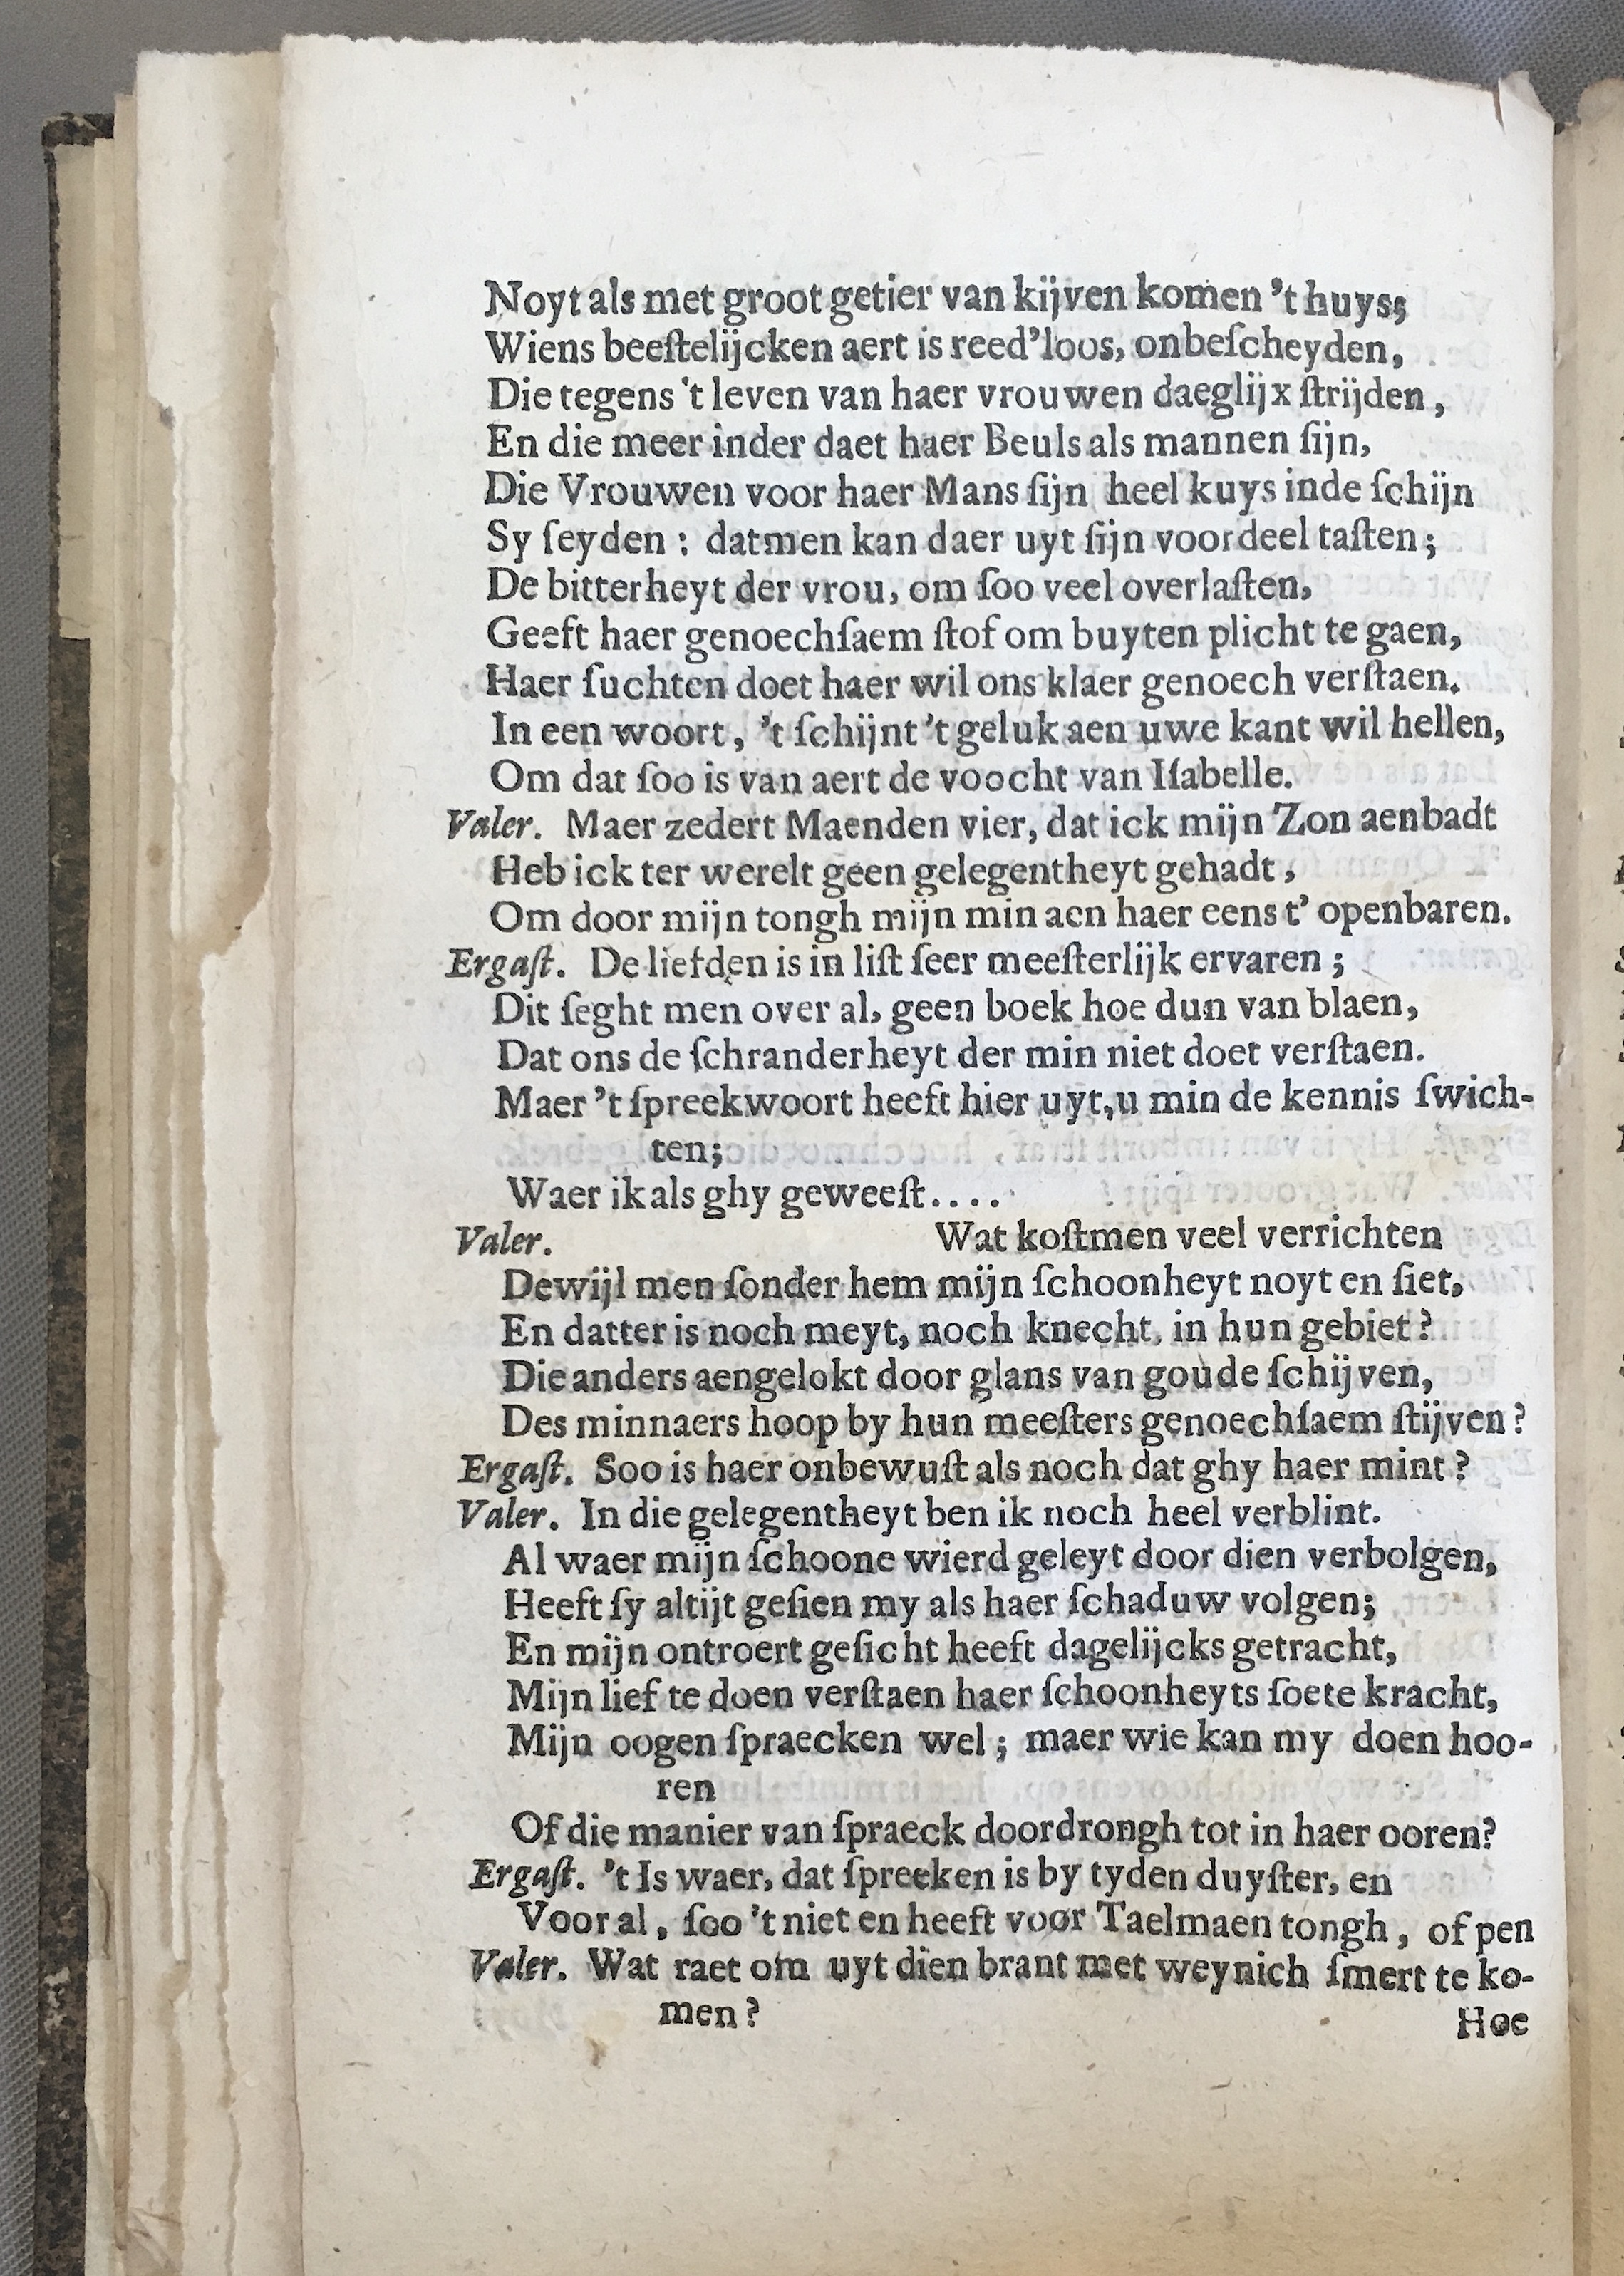 Noyt als met groot getier van kijven komen 't huys;
Wiens beeſtelijcken aert is reed'loos, onbeſcheyden,
Die tegens 't leven van haer vrouwen daeglijx ſtrijden,
En die meer inder daet haer Beuls als mannen ſijn,
Die Vrouwen voor haer Mans ſijn heel kuys inde ſchijn
Sy ſeyden : datmen kan daer uyt ſijn voordeel taſten;
De bitterheyt der vrou, om ſoo veel overlaſten,
Geeft haer genoechſaem ſtof om buyten plicht te gaen,
Haer ſuchten doet haer wil ons klaer genoech verſtaen.
In een woort, 't ſchijnt 't geluk aen uwe kant wil hellen,
Om dat ſoo is van aert de voocht van Iſabelle.
Valer. Maer zedert Maenden vier, dat ick mijn Zon aenbadt
Heb ick ter werelt geen gelegentheyt gehadt,
Om door mijn tongh mijn min aen haer eens t' openbaren.
Ergaſt. De liefden is in liſt ſeer meeſterlijk ervaren ;
Dit ſeght men over al, geen boek hoe dun van blaen,
Dat ons de ſchranderheyt der min niet doet verſtaen.
Maer 't ſpreekwoort heeft hier uyt, u min de kennis ſwich-
ten;
Waer ik als ghy geweeſt....
Valer. Wat koſtmen veel verrichten
Dewijl men ſonder hem mijn ſchoonheyt noyt en ſiet,
En datter is noch meyt, noch knecht, in hun gebiet?
Die anders aengelokt door glans van goude ſchijven,
Des minnaers hoop by hun meeſters genoechſaem ſtijven?
Ergaſt. Soo is haer onbewuſt als noch dat ghy haer mint?
Valer. In die gelegentheyt ben ik noch heel verblint.
Al waer mijn ſchoone wierd geleyt door dien verbolgen,
Heeft ſy altijt geſien my als haer ſchaduw volgen;
En mijn ontroert geſicht heeft dagelijcks getracht,
Mijn lief te doen verſtaen haer ſchoonheyts ſoete kracht,
Mijn oogen ſpraecken wel ; maer wie kan my doen hoo-
ren
Of die manier van ſpraeck doordrongh tot in haer ooren?
Ergaſt. 't Is waer, dat ſpreeken is by tyden duyſter, en
Voor al, ſoo 't niet en heeft voor Taelmaen tongh, of pen
Valer. Wat raet om uyt dien brant met weynich ſmert te ko-
men?
Hoe